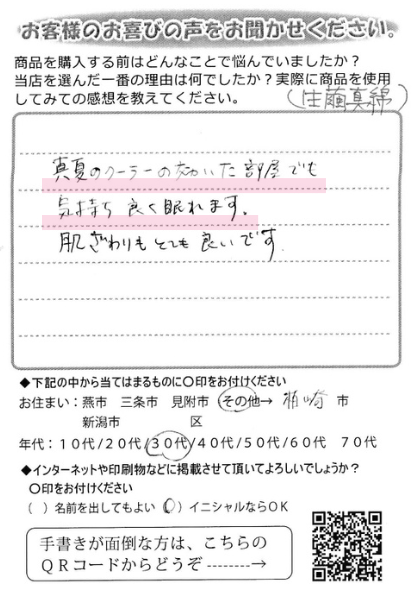 お客様のお喜びの声をお聞かせください。
商品を購入する前はどんなことで悩んでいましたか？
当店を選んだ一番の理由は何でしたか？実際に商品を使用
してみての感想を教えてください。
（生繭真綿）
真夏のクーラーの効いた部屋でも
気持ち良く眠れます。
肌ざわりもとても良いです
◆下記の中から当てはまるものに〇印をお付けください
お住まい：燕市 三条市 見附市 その他→ 柏崎 市
新潟市 区
年代：１０代/２０代/３０代/４０代/５０代/６０代 ７０代
◆インターネットや印刷物などに掲載させて頂いてよろしいでしょうか？
〇印をお付けください
（ ）名前を出してもよい（〇）イニシャルならＯＫ
手書きが面倒な方は、こちらの
ＱＲコードからどうぞ --------→